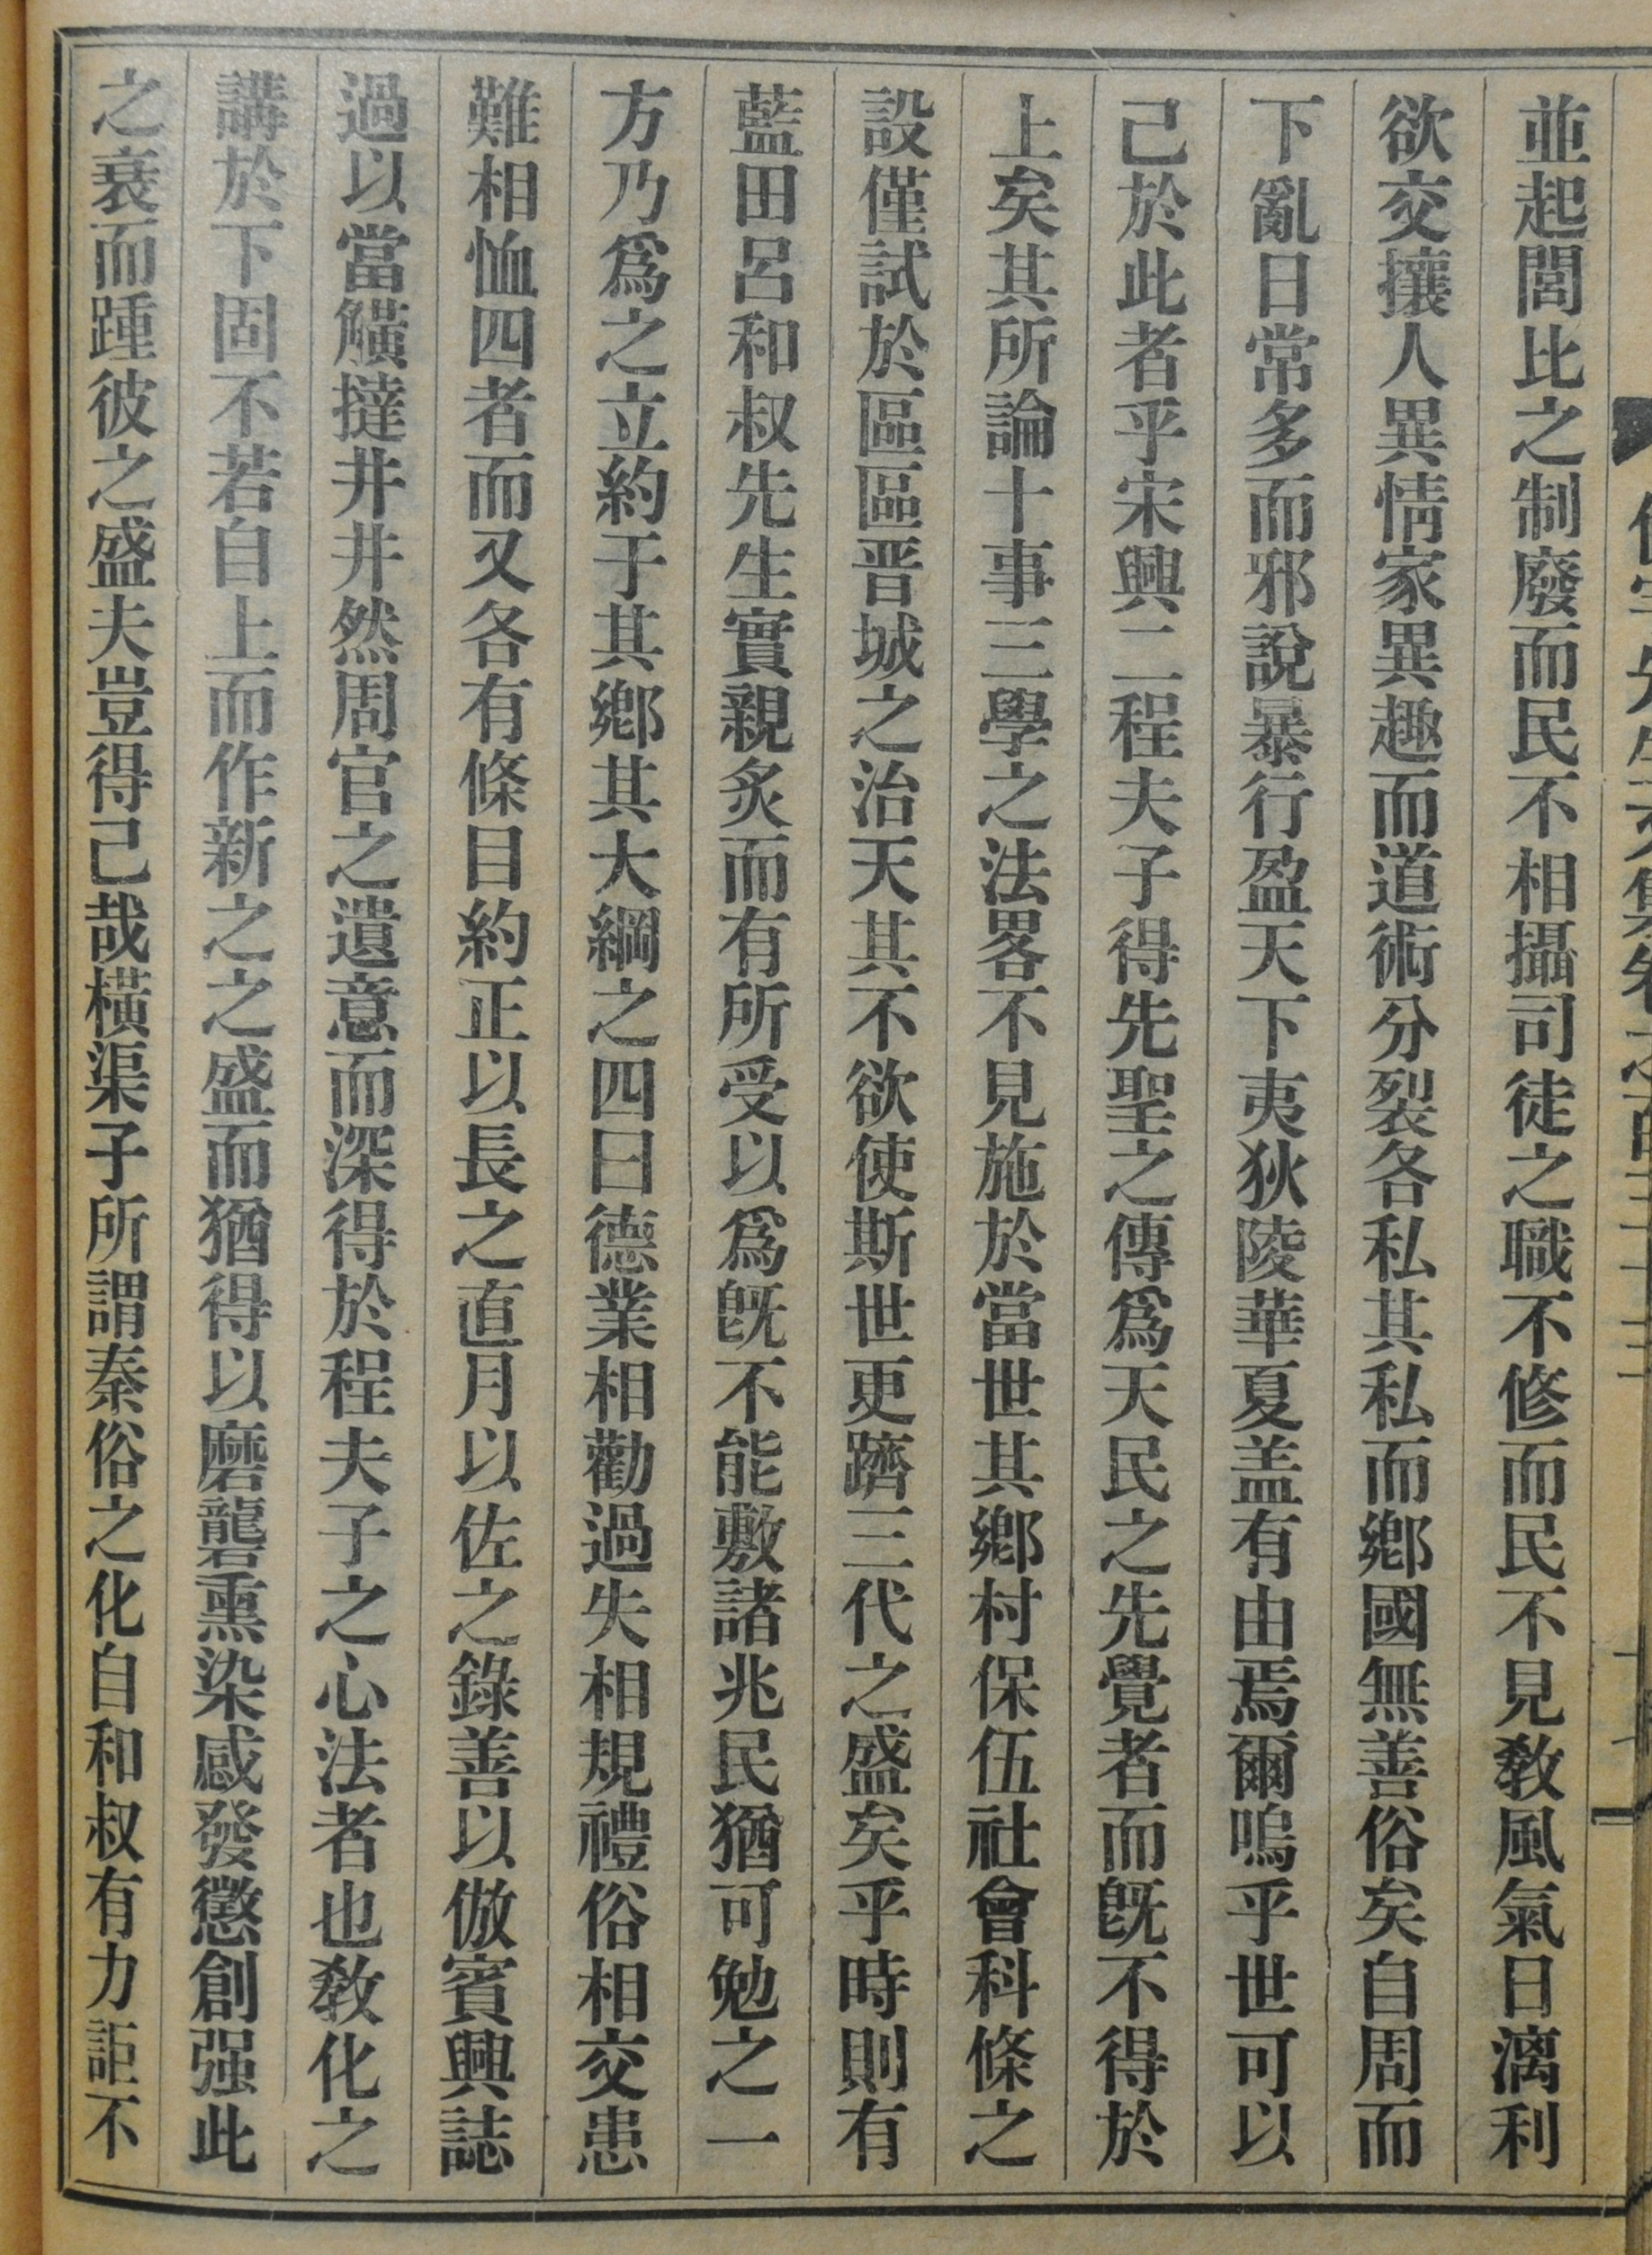 並起閭比之制廢而民不相攝司徒之職不修而民不見敎風氣日漓利
欲交攘人異情家異趣而道術分裂各私其私而鄕國無善俗矣自周而
下亂日常多而邪說暴行盈天下夷狄陵華夏盖有由焉爾嗚乎世可以
己於此者乎宋興二程夫子得先聖之傳爲天民之先覺者而旣不得於
上矣其所論十事三學之法畧不見施於當世其鄕村保伍社會科條之
設僅試於區區晋城之治天其不欲使斯世更躋三代之盛矣乎時則有
藍田呂和叔先生實親炙而有所受以爲旣不能敷諸兆民猶可勉之一
方乃爲之立約于其鄕其大綱之四曰德業相勸過失相規禮俗相交患
難相恤四者而又各有條目約正以長之直月以佐之錄善以倣賓興誌
過以當觵撻井井然周官之遺意而深得於程夫子之心法者也敎化之
講於下固不若自上而作新之之盛而猶得以磨礱熏染感發懲創强此
之衰而踵彼之盛夫豈得己哉橫渠子所謂秦俗之化自和叔有力詎不